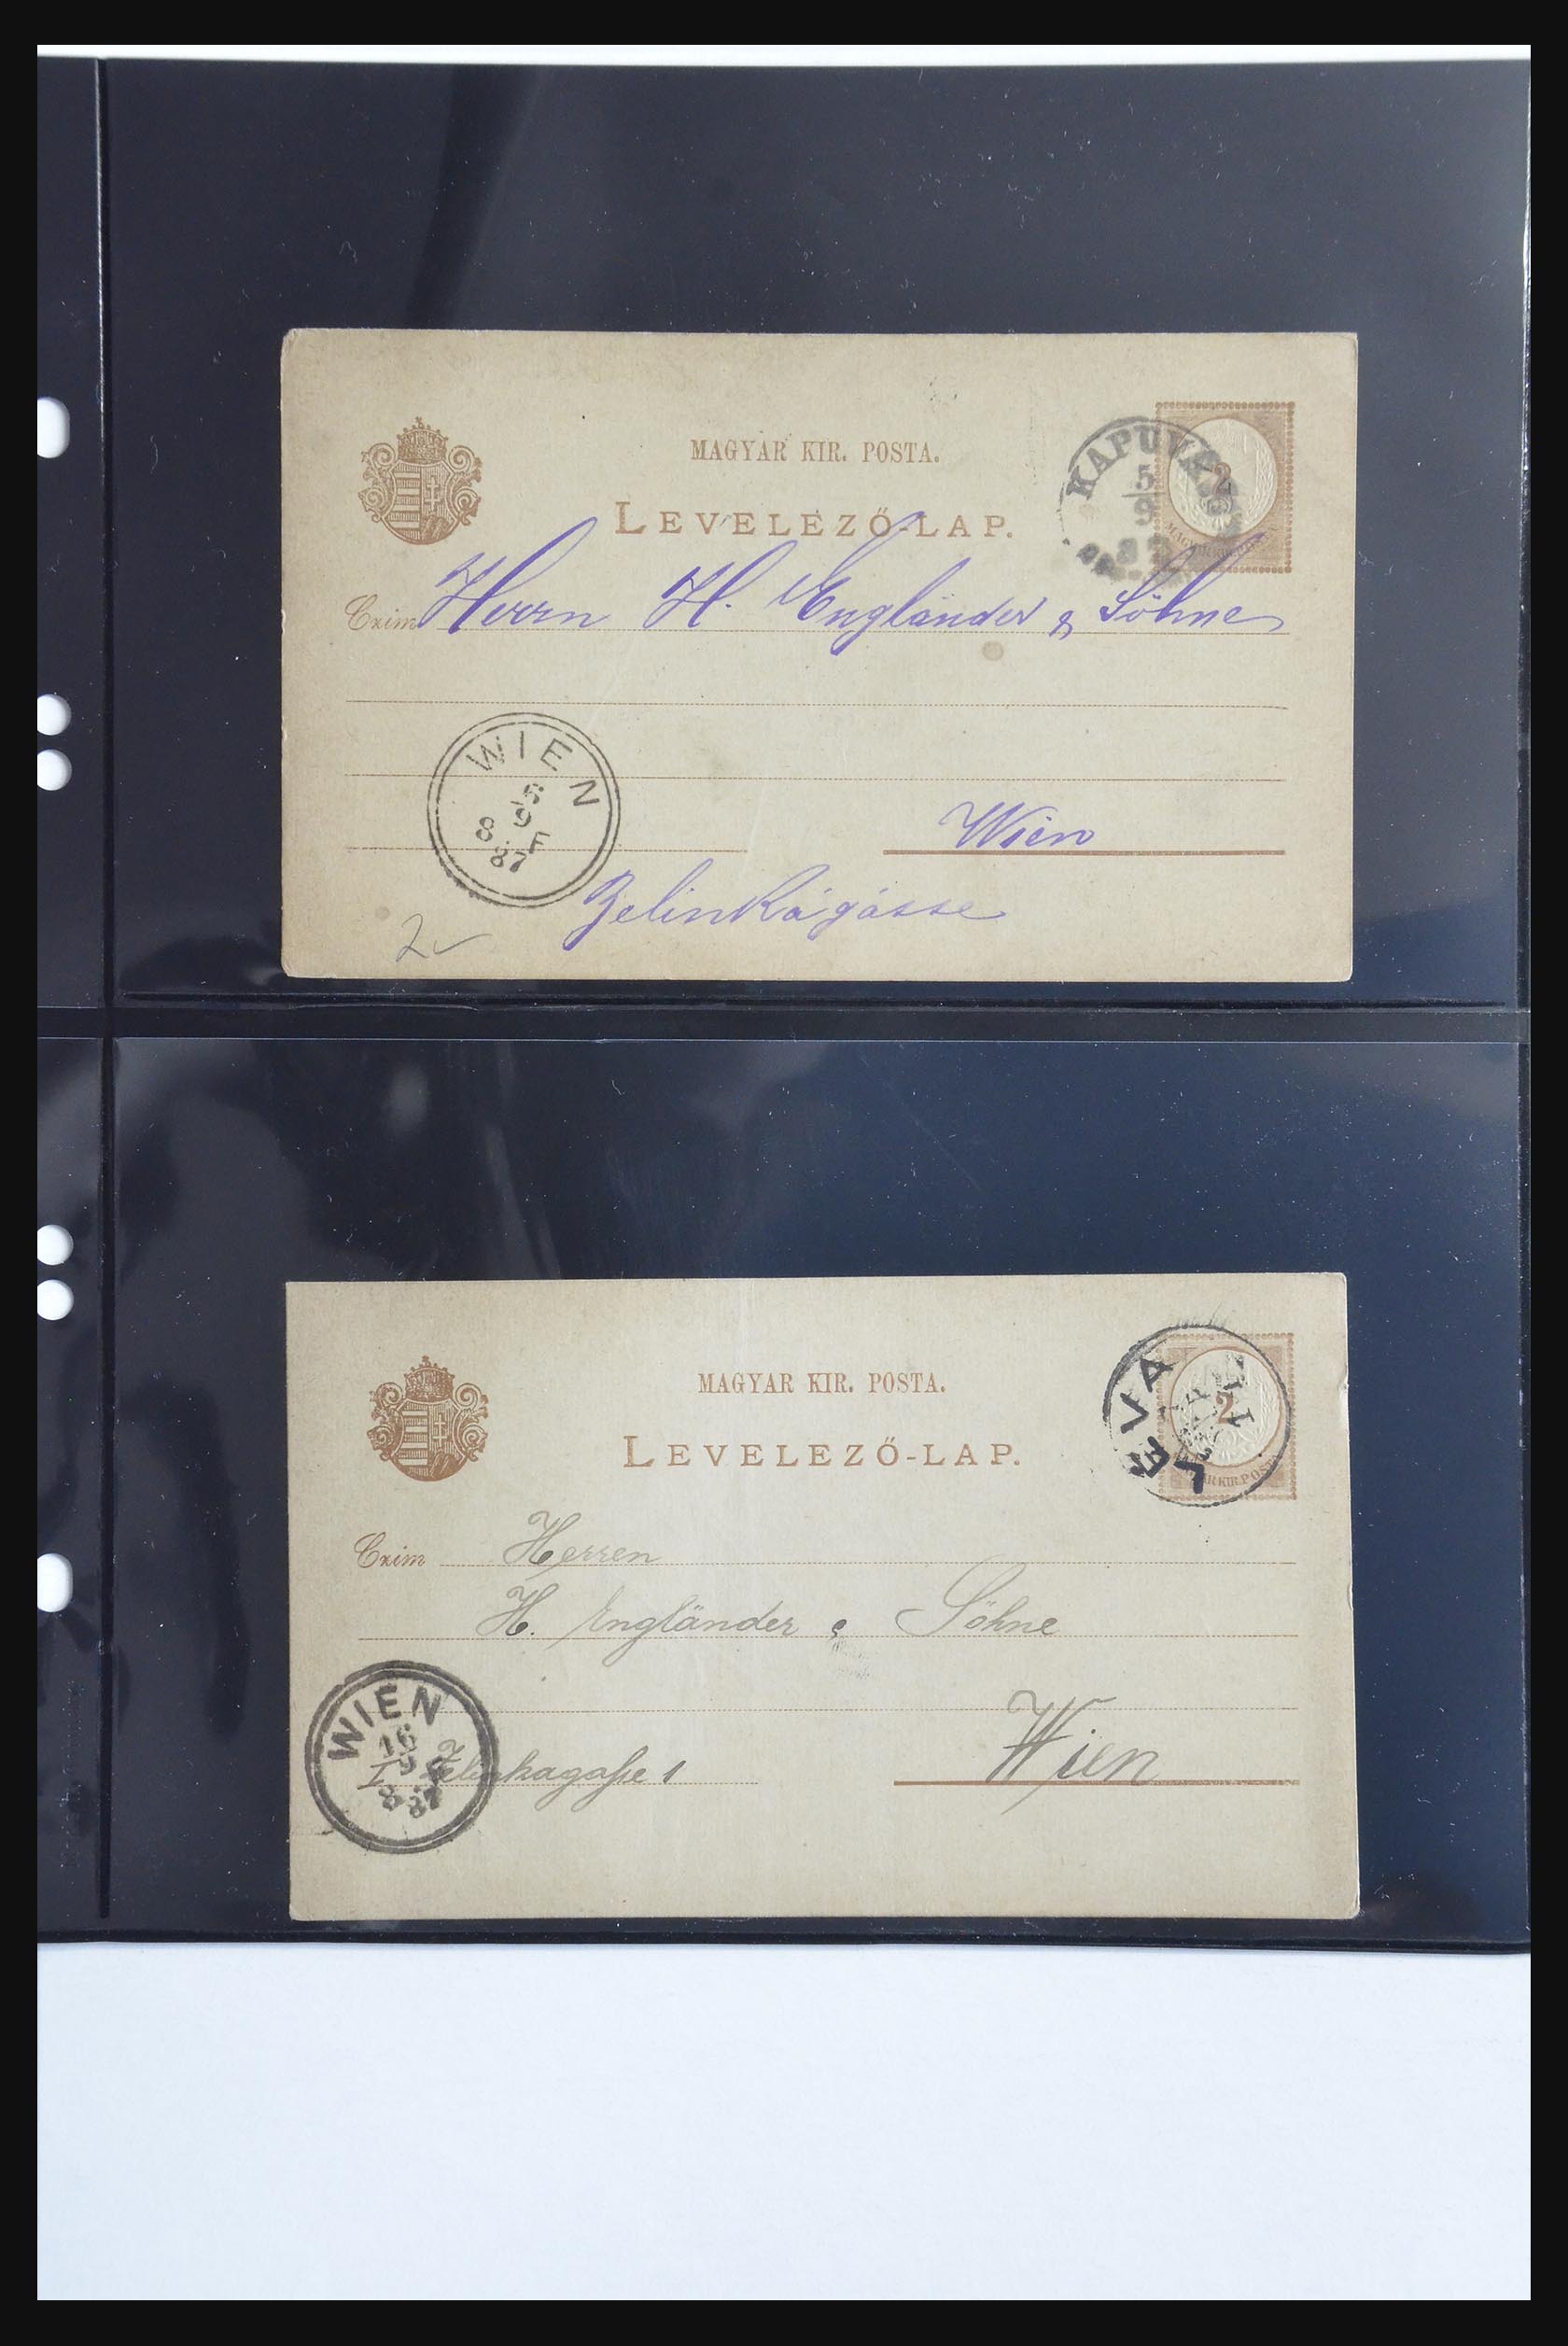 MAGYAR KIR. POSTA.
LEVELEZŐ-LAP.
KAPUVÁR
5
9
87
2
MAGYAR KIR. POSTA
Czim Herrn H. Engländer & Söhne
WIEN
5
9
8 F
87
Wien
Zelinkágásse
2
MAGYAR KIR. POSTA.
LEVELEZŐ-LAP.
LÉVA
2
MAGYAR KIR. POSTA
Czim Herren
H. Engländer & Söhne
WIEN
16
9
8 F
87
I Zelinkagasse 1
Wien